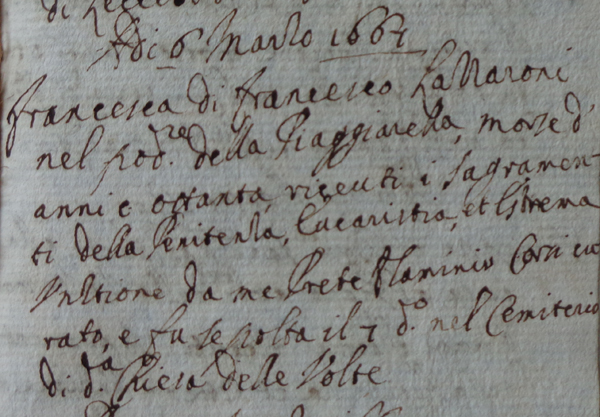 Adi 6 Marzo 1663
Francesca di Francesco Lazzaroni
nel pod.re della Piaggiarella, morse d'
anni e ottanta, riceuti i Sagramen-
ti della Penitenza, Eucaristia, et Estrema
Untione da me Prete Flaminio Corsi cu
rato, e fu sepolta il 7 d.o nel Cemiterio
di d.a Chiesa delle Volte